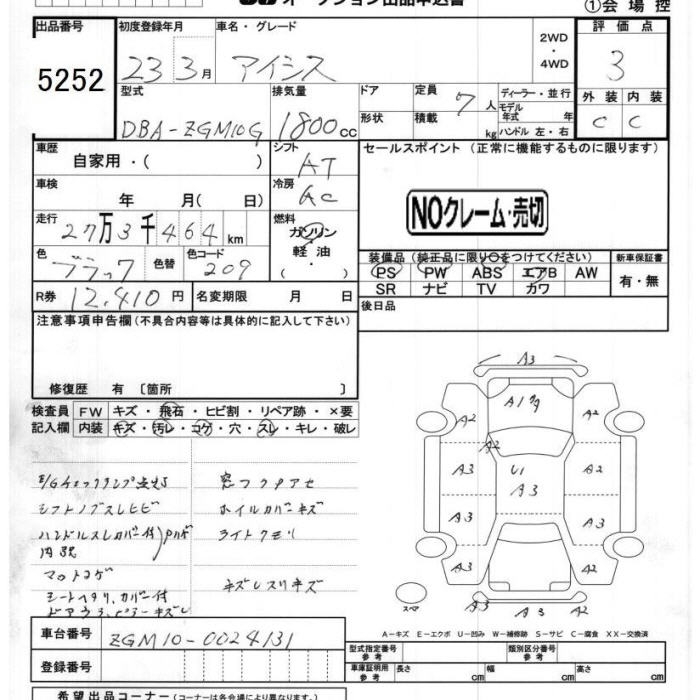 オークション出品申込書
①会場控
出品番号 初度登録年月 車名・グレード 2WD・4WD 評価点
5252 23 3月 アイシス 3
型式 排気量 ドア 定員 7人 ディーラー・並行 外装 内装
DBA-ZGM10G 1800cc 形状 積載 kg モデル年式 年 ハンドル 左・右 C C
車歴 自家用・( ) シフト AT セールスポイント (正常に機能するものに限ります)
車検 年 月(日) 冷房 AC
NOクレーム・売切
走行 27万3千464km 燃料 ガソリン・軽油・( )
色 ブラック 色替 色コード 209
装備品(純正品に限り○をつけてください) 新車保証書
PS PW ABS エアB AW 有・無
SR ナビ TV カワ
R券 12,410円 名変期限 月 日 後日品
注意事項申告欄(不具合内容等は具体的に記入して下さい)
修復歴 有 [箇所 ]
検査員 FW キズ・飛石・ヒビ割・リペア跡・×要
記入欄 内装 キズ・汚レ・コゲ・穴・スレ・キレ・破レ
シフトノブスレヒビ
ホイルカバーキズ
ライトクモリ
キズレスリキズ
A3
A1
A2 A2
A3 U1 A2
A3
A3 A3
A2 A2
A3 A3 A2
スペア
A-キズ E-エクボ U-凹み W-補修跡 S-サビ C-腐食 XX-交換済
車台番号 ZGM10-0024131
登録番号
型式指定番号 参考 類別区分番号 参考
車庫証明用 参考 長さ cm 幅 cm 高さ cm
希望出品コーナー(コーナーは各会場により異なります。)